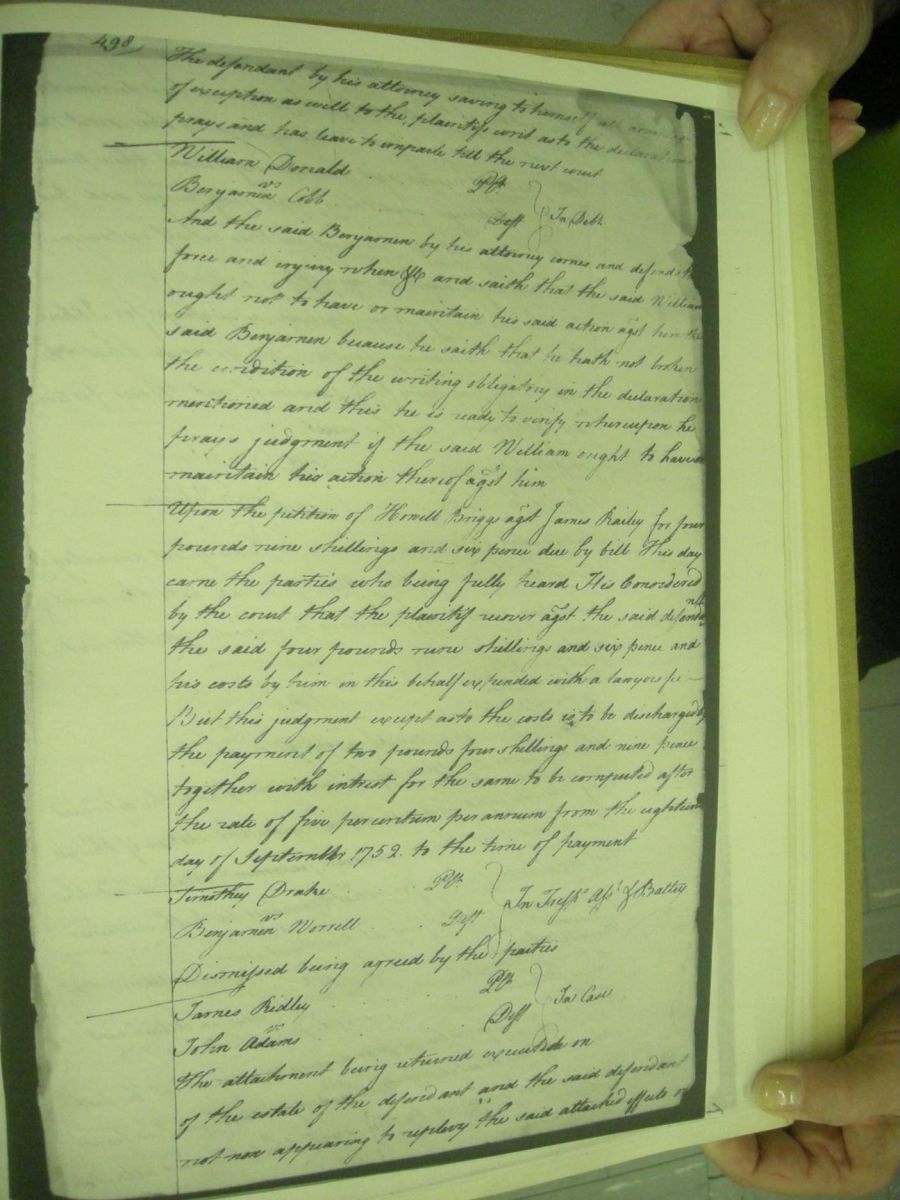 498
The defendant by his attorney saving to himself all
of exception as well to the plaintiffs writ as to the declaration
prays and has leave to imparle till the next court
William Donald Plt.
vs In Debt
Benjamen Cobb Deft
And the said Benjamen by his attorney comes and defends the
force and injury when &c and saith that the said William
ought not to have or maintain his said action agst him the
said Benjamen because he saith that he hath not broken
the condition of the writing obligatory in the declaration
mentioned and this he is ready to verify whereupon he
prays judgment if the said William ought to have or
maintain his action thereof agst him
Upon the petition of Howell Briggs agst James Railey for four
pounds nine shillings and six pence due by bill This day
came the parties who being fully heard It is Considered
by the court that the plaintif recover agst the said defendant
the said four pounds nine shillings and six pence and
his costs by him in this behalf expended with a lawyers fe
But this judgment except as to the costs is to be discharged by
the payment of two pounds four shillings and nine peace
together with intrest for the same to be computed after
the rate of five per centum per annum from the eighteenth
day of September 1752. to the time of payment
Timothey Drake Plt.
vs In Tresps Asst & Battery
Benjamen Worrell Deft
Dismissed being agreed by the parties
James Ridley Plt
vs In Case
John Adams Deft
The attachment being returned executed on
of the estate of the defendant and the said defendant
not now appearing to replevy the said attached effects or